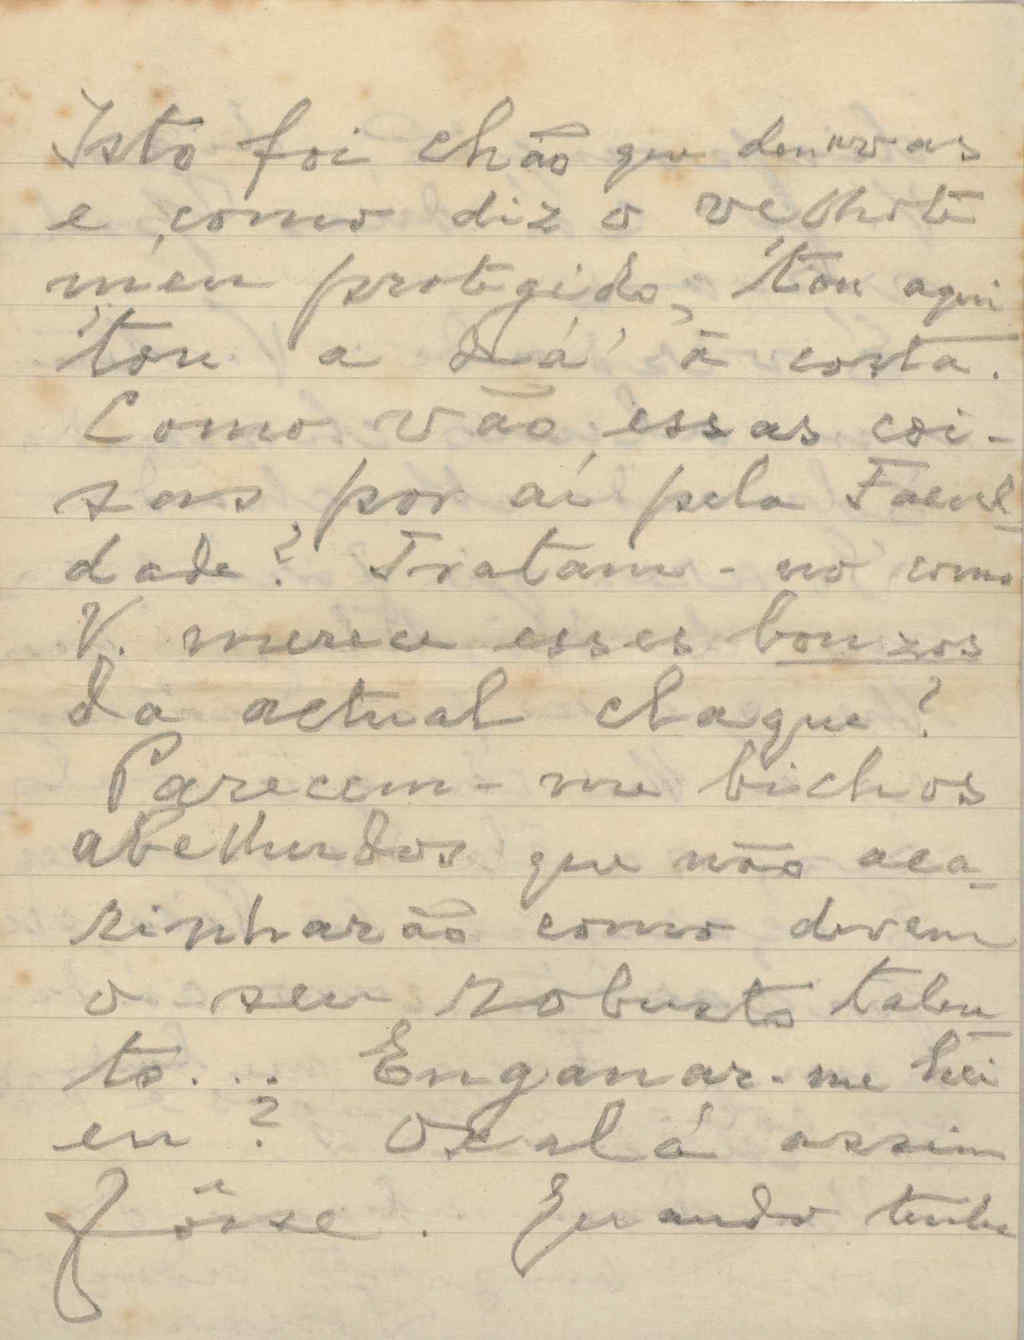 Isto foi chão que deu uvas
e, como diz o velhote
meu protegido, 'tou aqui
'tou a dá' à costa.
Como vão essas coi-
sas por aí pela Facul-
dade? Tratam-no como
V. merece esses bonzos
da actual claque?
Parecem-me bichos
abelhudos que não aca-
rinharão como devem
o seu robusto talen-
to... Enganar-me hei
eu? Oxalá assim
fôsse. Quando tenha